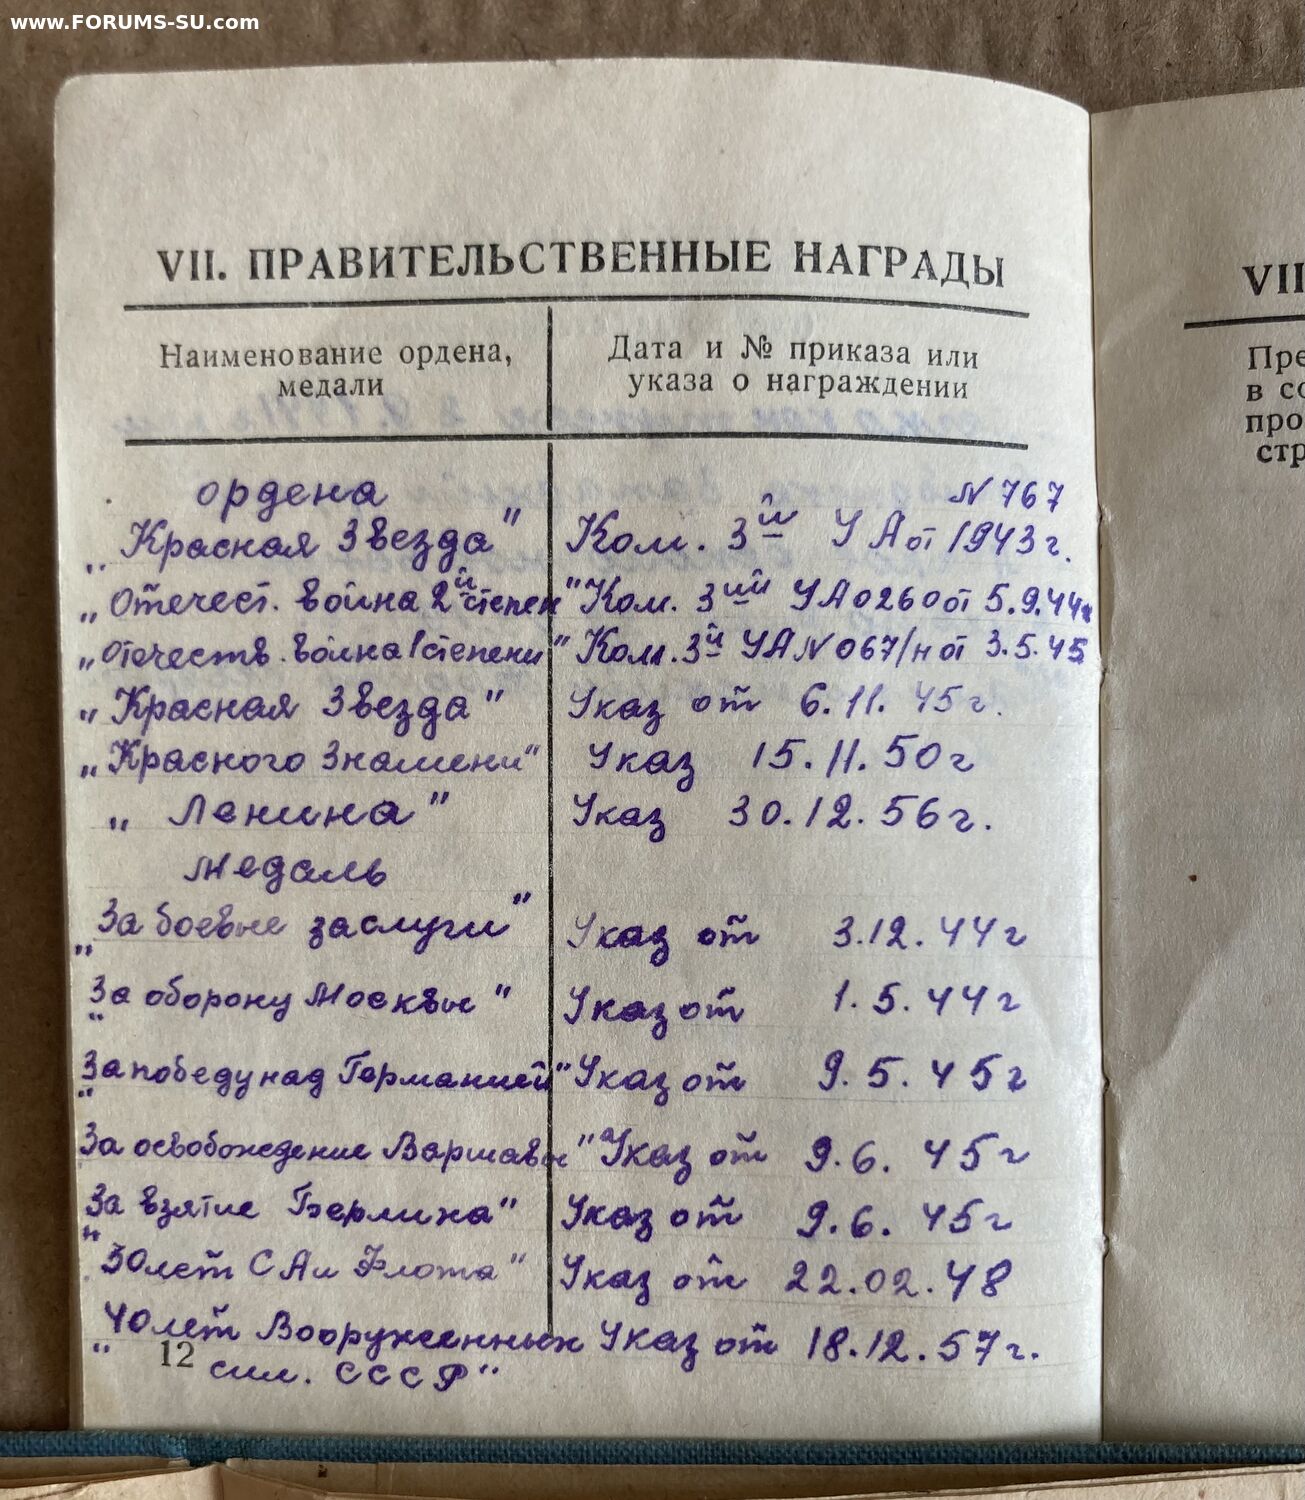 www.FORUMS-SU.com
VII. ПРАВИТЕЛЬСТВЕННЫЕ НАГРАДЫ
Наименование ордена, медали
Дата и № приказа или указа о награждении
ордена N 767
„Красная Звезда" Ком. 3й УА от 1943г.
„Отечест. война 2й степен" Ком. 3ий УА 0260 от 5.9.44г
„Отечеств. война 1 степени" Ком. 3й УА N 067/н от 3.5.45
„Красная Звезда" Указ от 6.11.45г.
„Красного Знамени" Указ 15.11.50г
„Ленина" Указ 30.12.56г.
Медаль
„За боевые заслуги" Указ от 3.12.44г
„За оборону Москвы" Указ от 1.5.44г
„За победу над Германией" Указ от 9.5.45г
За освобождение Варшавы" Указ от 9.6.45г
„За взятие Берлина" Указ от 9.6.45г
30 лет СА и Флота" Указ от 22.02.48
„40 лет Вооруженных Указ от 18.12.57г.
сил. СССР"
12
VII
Пре
в со
про
стр